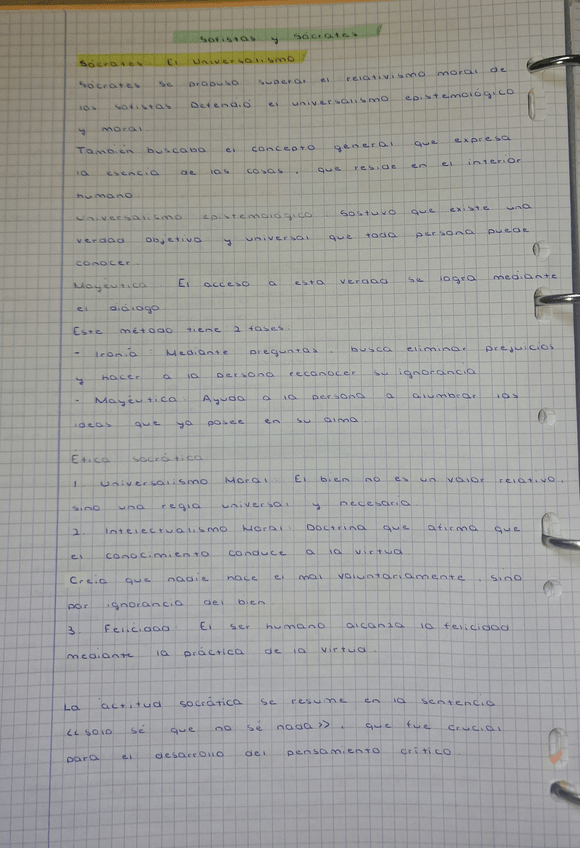 Sofistas y Sócrates
Sócrates: El Universalismo
Sócrates se propuso superar el relativismo moral de
los sofistas. Defendió el universalismo epistemológico
y moral.
También buscaba el concepto general que expresa
la esencia de las cosas, que reside en el interior
humano.
Universalismo epistemológico: Sostuvo que existe una
verdad objetiva y universal que toda persona puede
conocer.
Mayéutica: El acceso a esta verdad se logra mediante
el diálogo
Este método tiene 2 fases:
- Ironía: Mediante preguntas, busca eliminar prejuicios
y hacer a la persona reconocer su ignorancia
- Mayéutica: Ayuda a la persona a alumbrar las
ideas que ya posee en su alma.
Ética socrática
1. Universalismo Moral: El bien no es un valor relativo,
sino una regla universal y necesaria.
2. Intelectualismo Moral: Doctrina que afirma que
el conocimiento conduce a la virtud.
Creía que nadie hace el mal voluntariamente, sino
por ignorancia del bien.
3. Felicidad: El ser humano alcanza la felicidad
mediante la práctica de la virtud.
La actitud socrática se resume en la sentencia
<<solo sé que no sé nada>>, que fue crucial
para el desarrollo del pensamiento crítico.